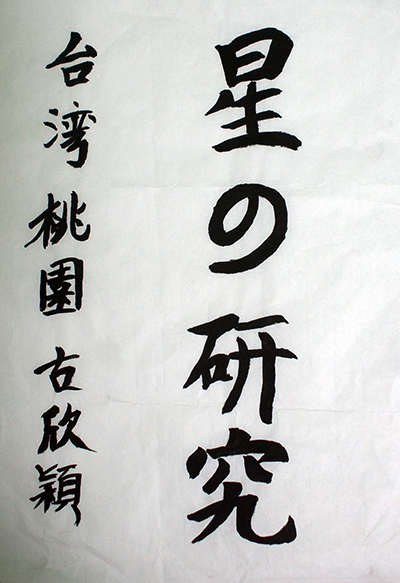 星の研究
台湾 桃園 古欣穎